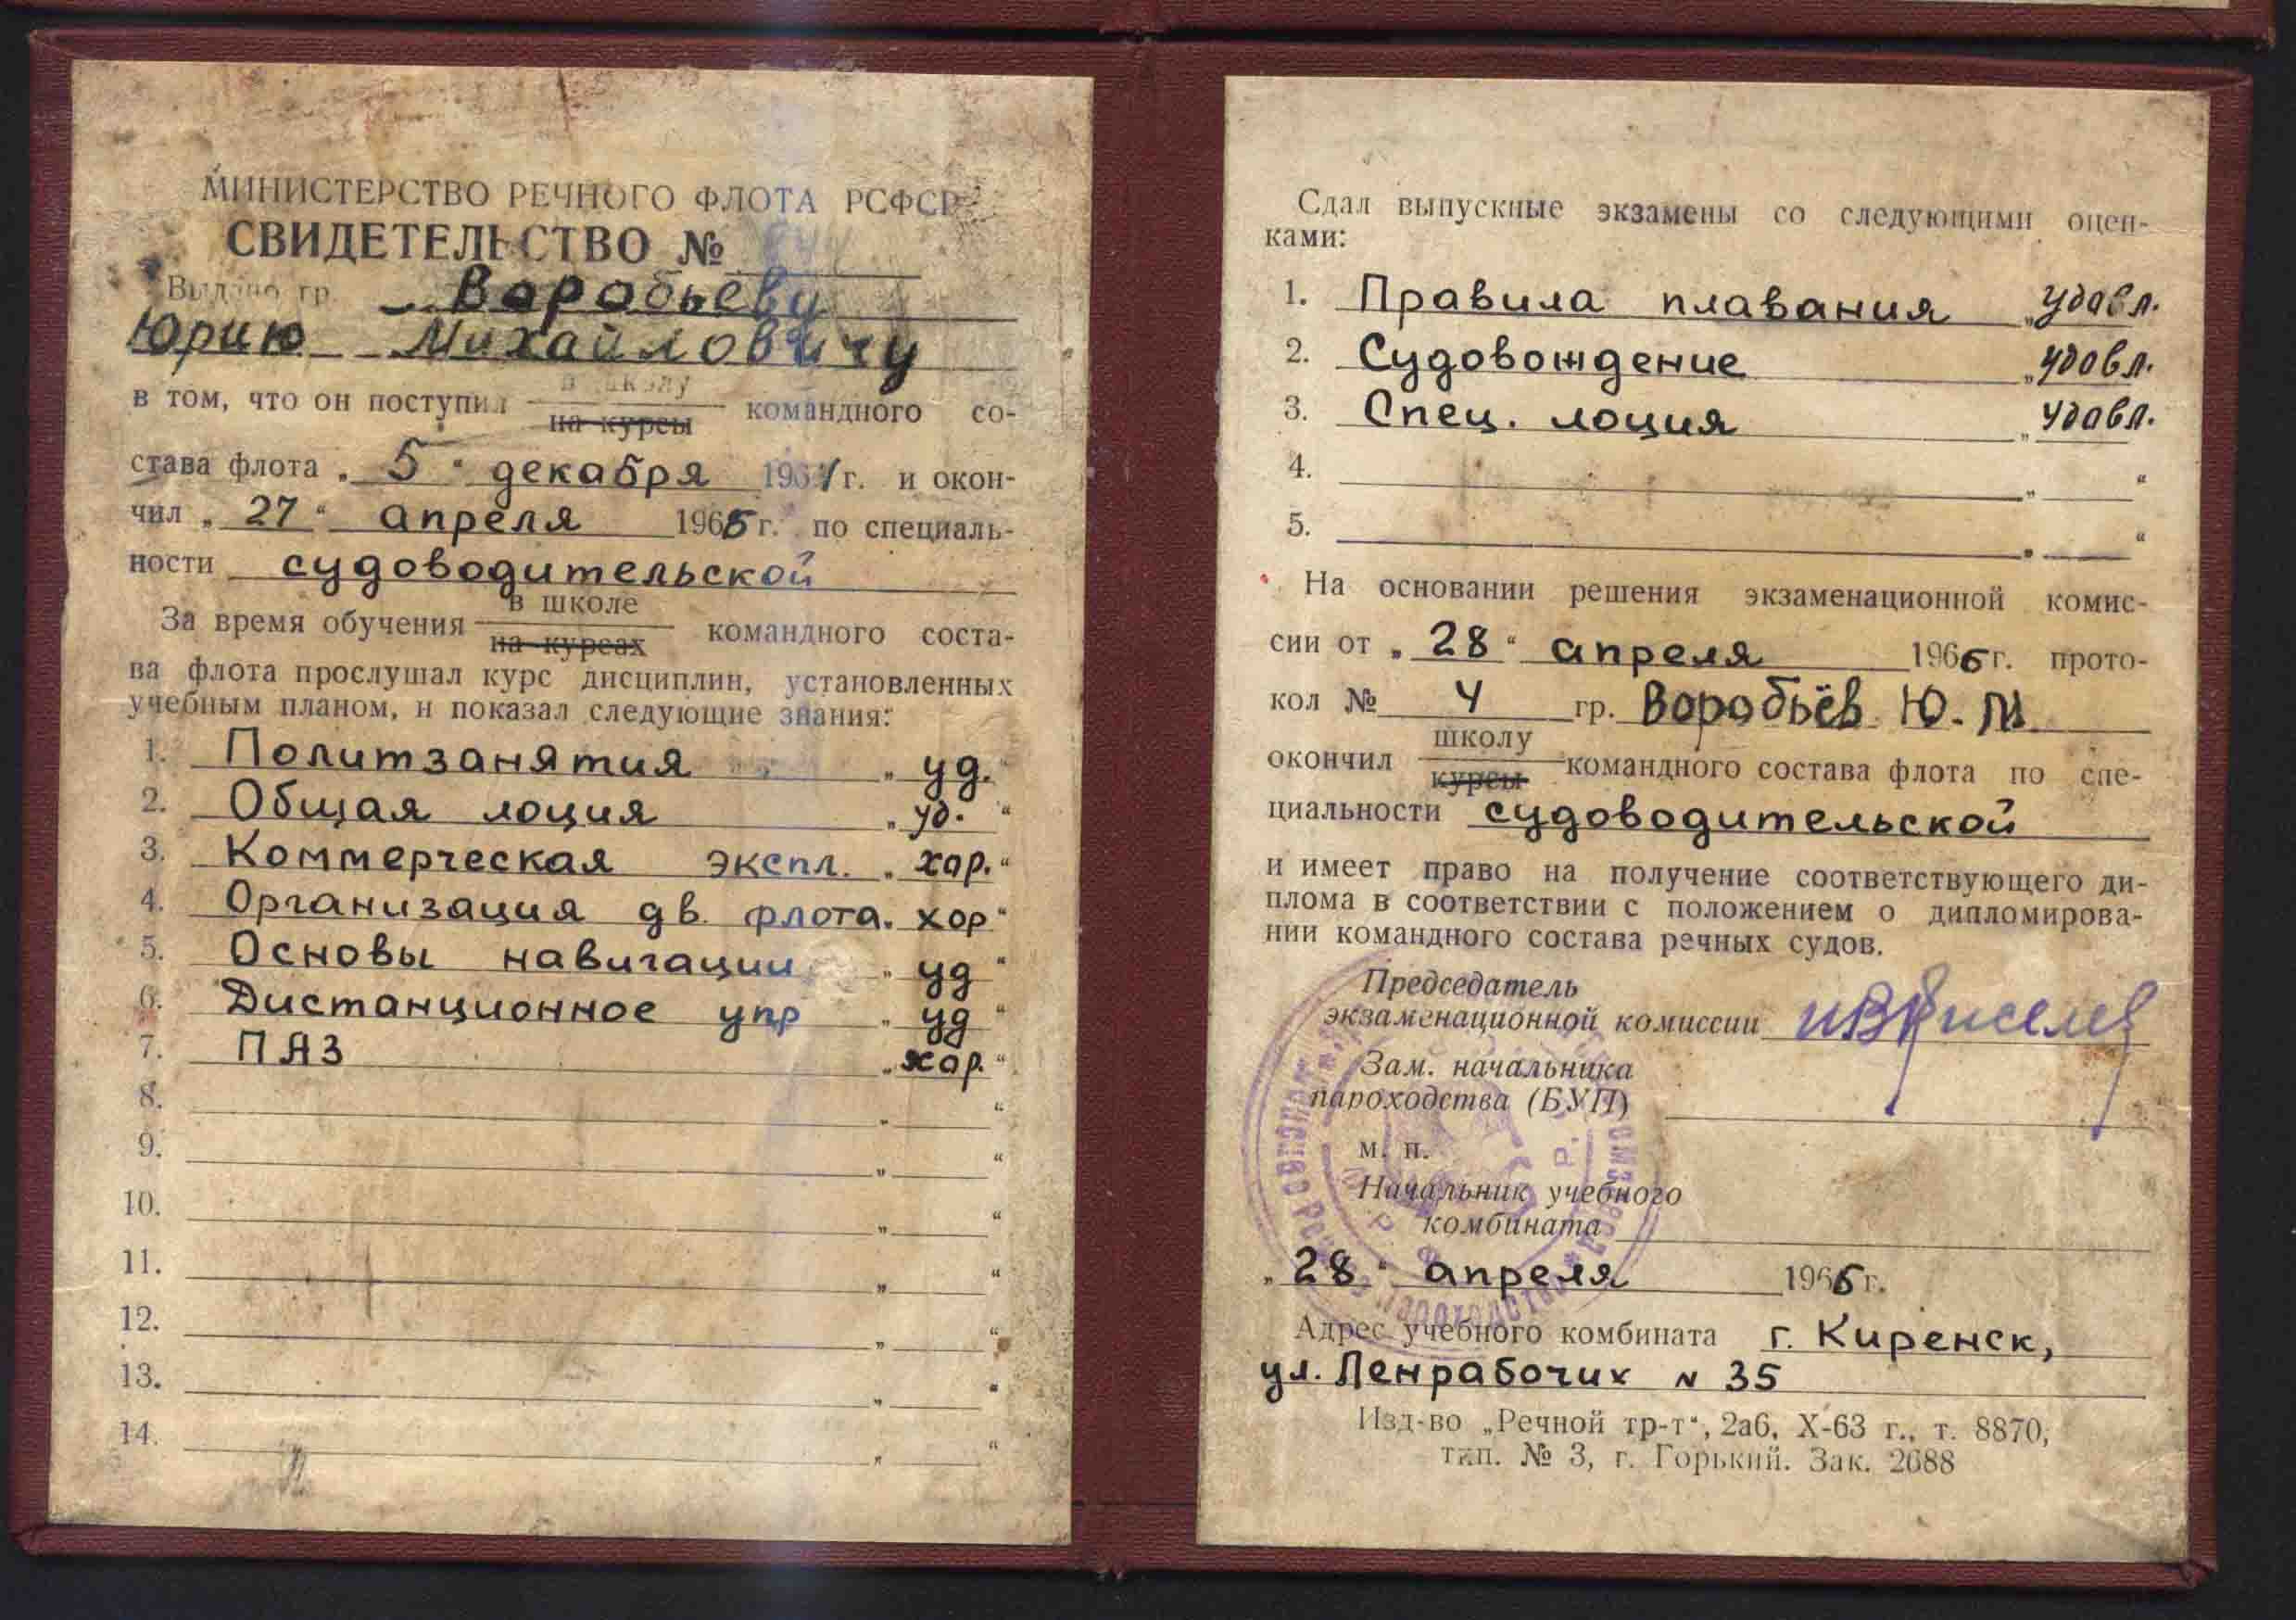 МИНИСТЕРСТВО РЕЧНОГО ФЛОТА РСФСР
СВИДЕТЕЛЬСТВО №
Выдано гр. Воробьеву
Юрию Михайловичу
в школу
в том, что он поступил на курсы командного со-
става флота „5“ декабря 1964 г. и окон-
чил „27“ апреля 1965 г. по специаль-
ности судоводительской
в школе
За время обучения на курсах командного соста-
ва флота прослушал курс дисциплин, установленных
учебным планом, и показал следующие знания:
1. Политзанятия „уд.“
2. Общая лоция „уд.“
3. Коммерческая экспл. „хор.“
4. Организация дв. флота „хор“
5. Основы навигации „уд“
6. Дистанционное упр „уд“
7. ПАЗ „хор.“
8. „ “
9. „ “
10. „ “
11. „ “
12. „ “
13. „ “
14. „ “
Сдал выпускные экзамены со следующими оцен-
ками:
1. Правила плавания „удовл.
2. Судовождение „удовл.
3. Спец. лоция „удовл.
4. „ “
5. „ “
На основании решения экзаменационной комис-
сии от „28“ апреля 1965 г. прото-
кол № 4 гр. Воробьёв Ю. М.
школу
окончил курсы командного состава флота по спе-
циальности судоводительской
и имеет право на получение соответствующего ди-
плома в соответствии с положением о дипломирова-
нии командного состава речных судов.
Председатель
экзаменационной комиссии
Зам. начальника
пароходства (БУП)
м. п.
Начальник учебного
комбината
„28“ апреля 1965 г.
Адрес учебного комбината г. Киренск,
ул. Ленрабочих N 35
Изд-во „Речной тр-т“, 2а6, X-63 г., т. 8870,
тип. № 3, г. Горький. Зак. 2688